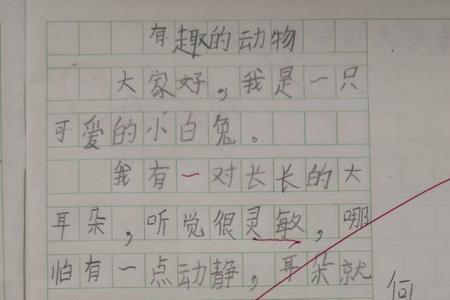 有趣的动物
大家好，我是一只
可爱的小白兔。
我有一对长长的大
耳朵，听觉很灵敏，哪
怕有一点动静，耳朵就
何